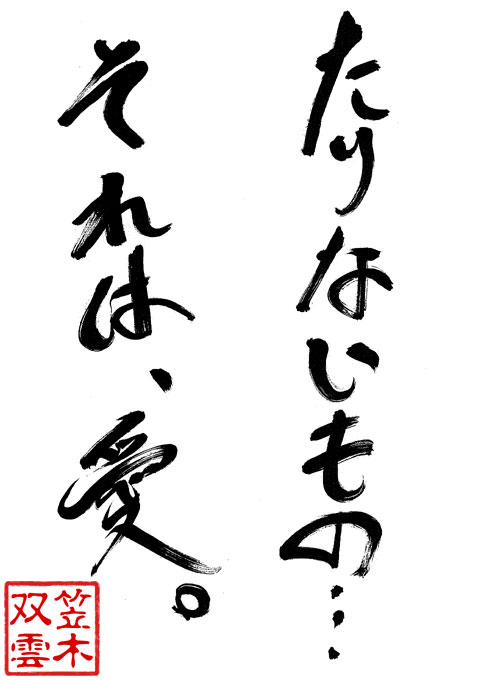 たりないもの…
それは、愛。
笠木
双雲